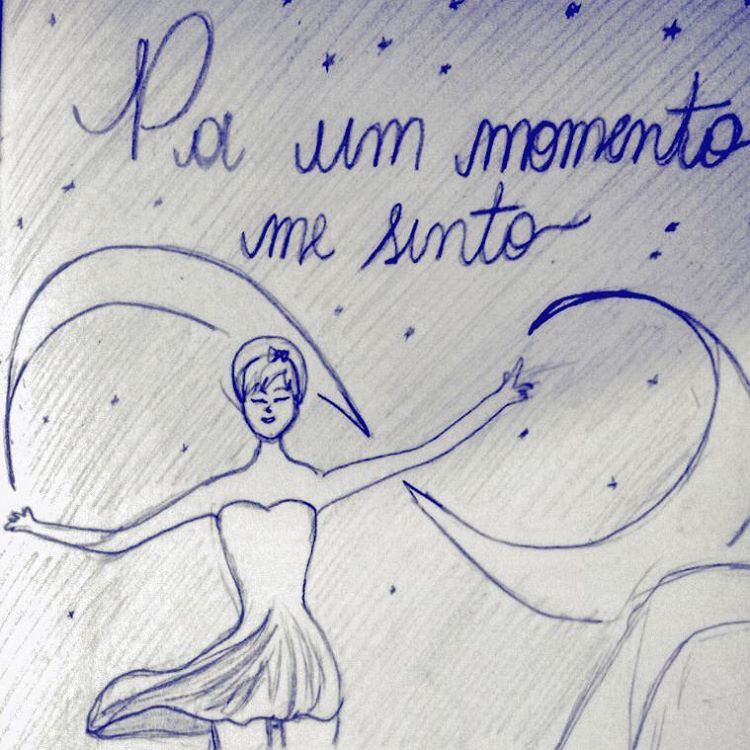 Por um momento
me sinto